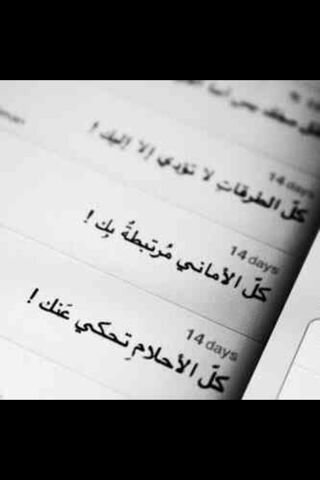 14 days
كلّ الطرقاتِ لا تؤدي إلا إليك !
14 days
كلّ الأماني مُرتبطةُ بِك !
14 days
كلّ الأحلامِ تحكي عَنك !